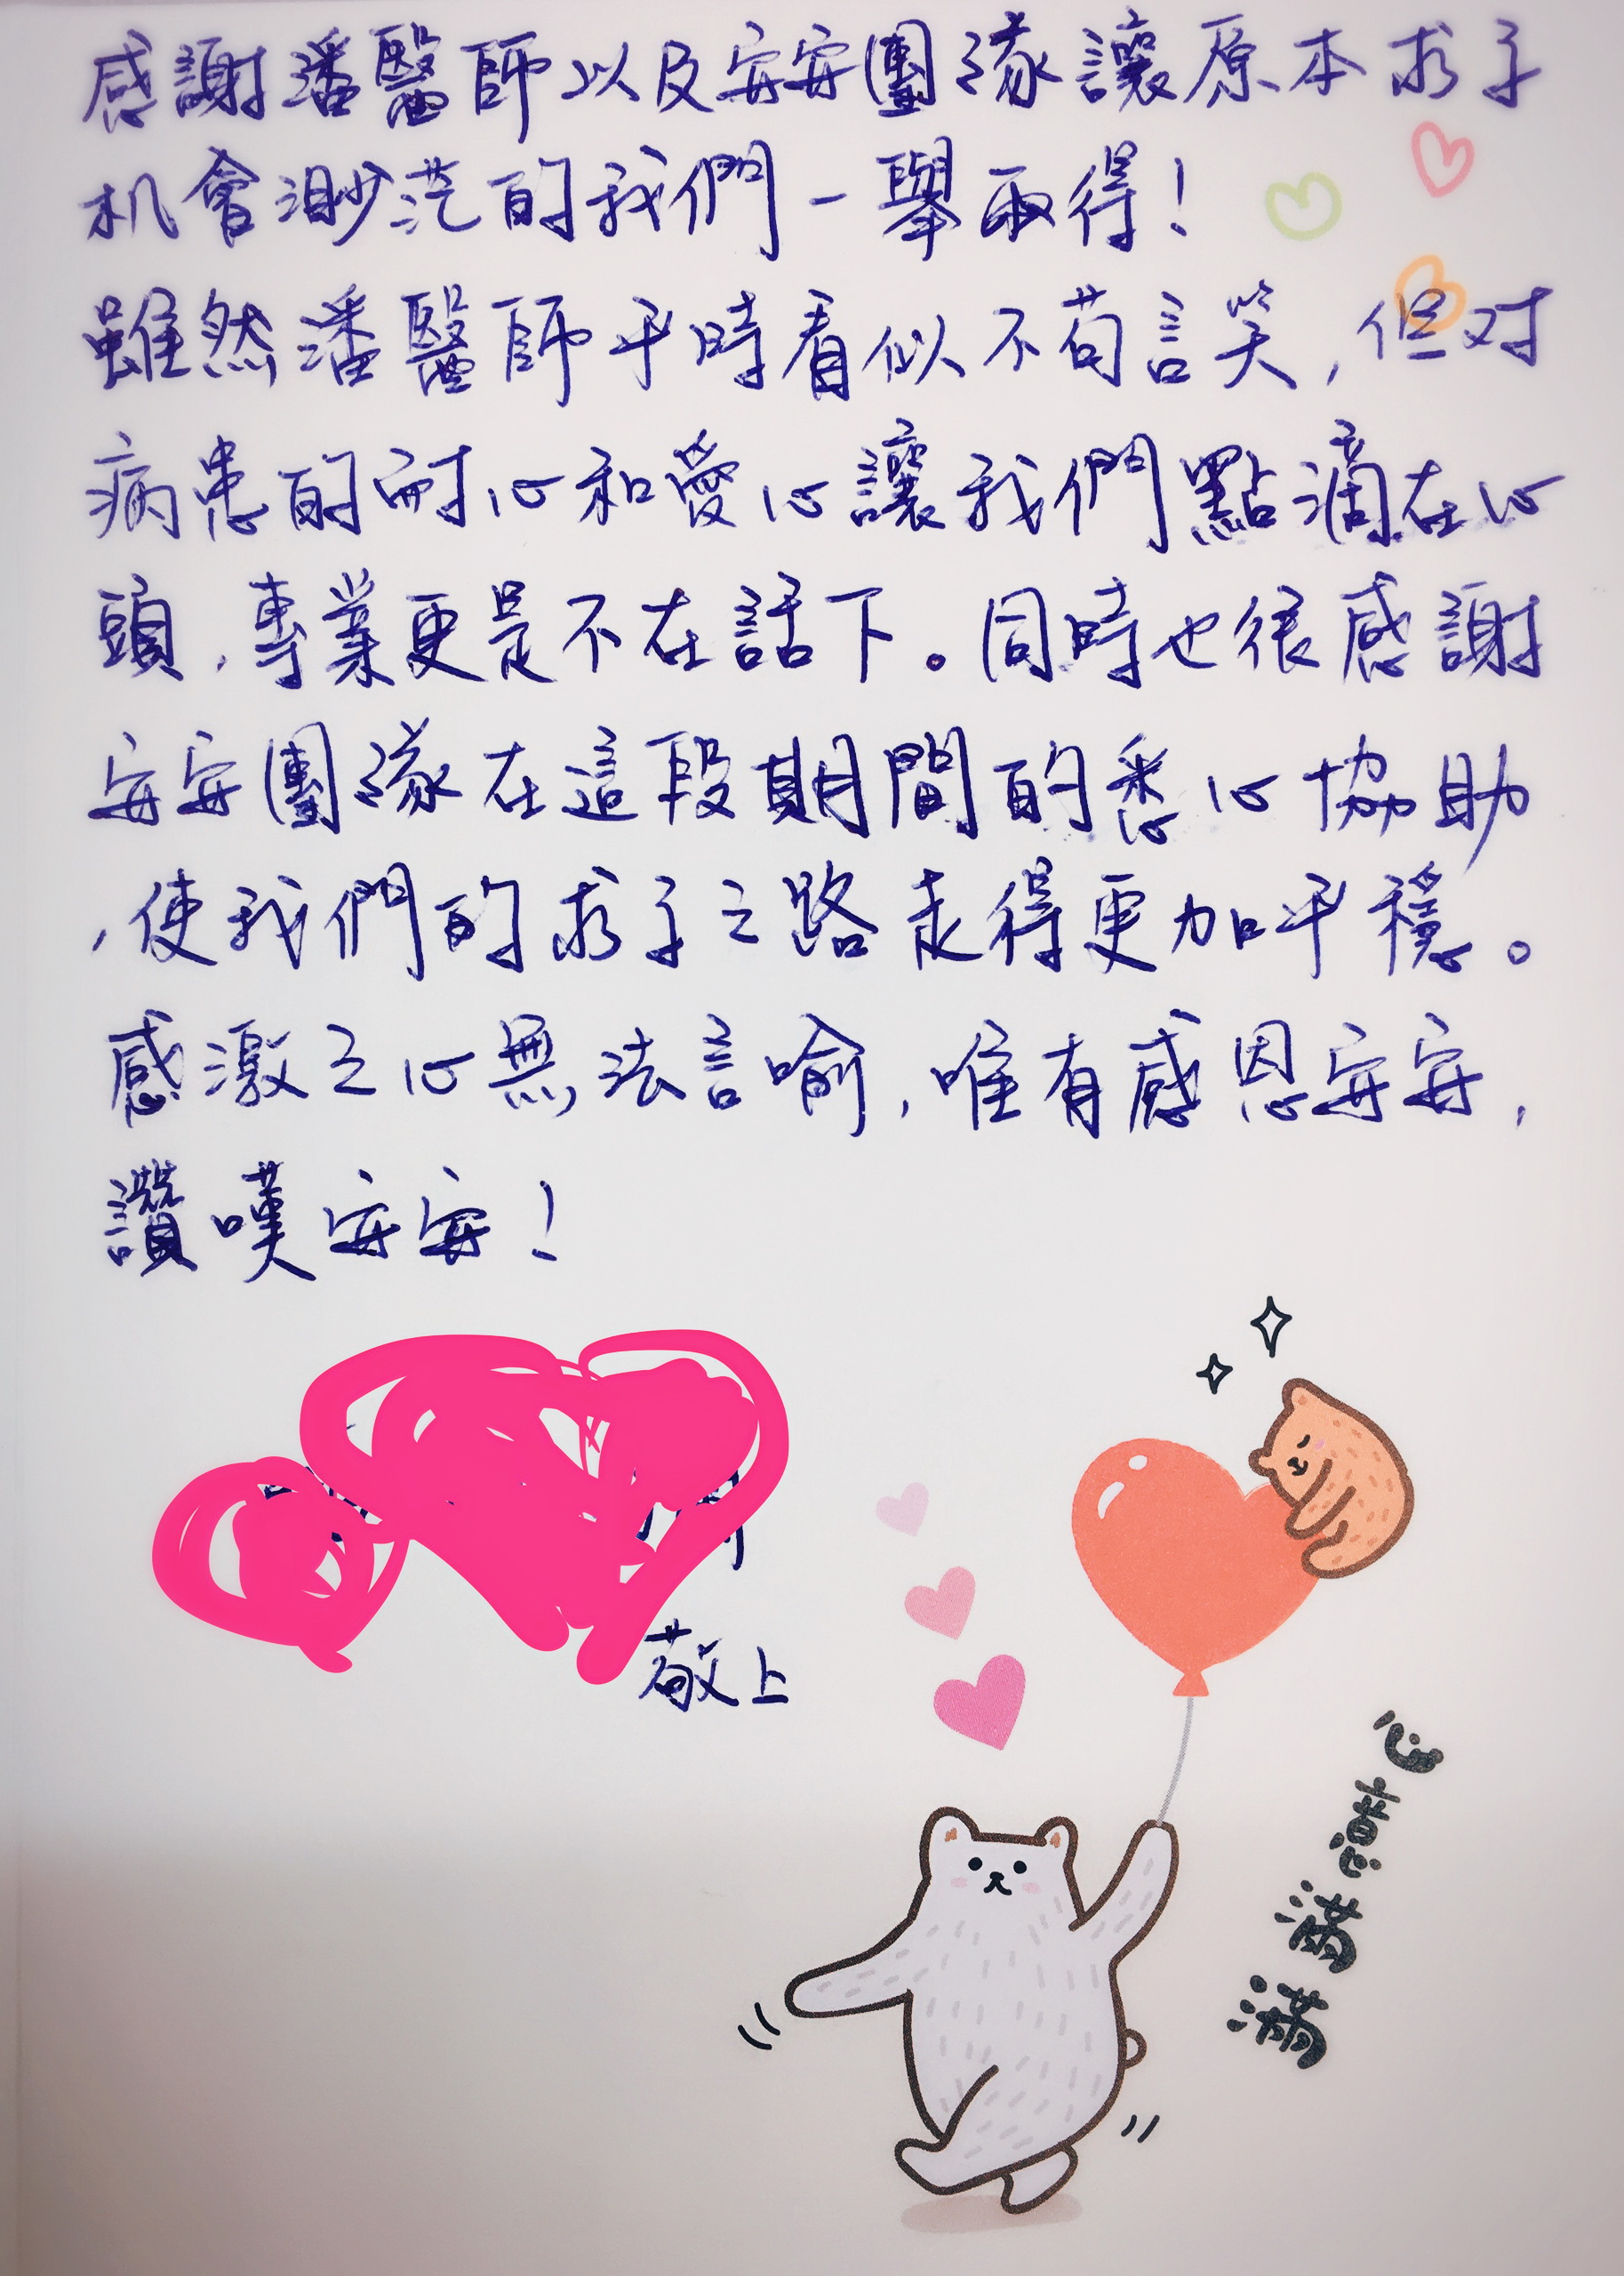 感謝潘醫師以及安安團隊讓原本求子
机會渺茫的我們一舉取得！
雖然潘醫師平時看似不苟言笑，但对
病患的耐心和愛心讓我們點滴在心
頭，專業更是不在話下。同時也很感謝
安安團隊在這段期間的悉心協助
，使我們的求子之路走得更加平穩。
感激之心無法言喻，唯有感恩安安，
讚嘆安安！
敬上
心意滿滿